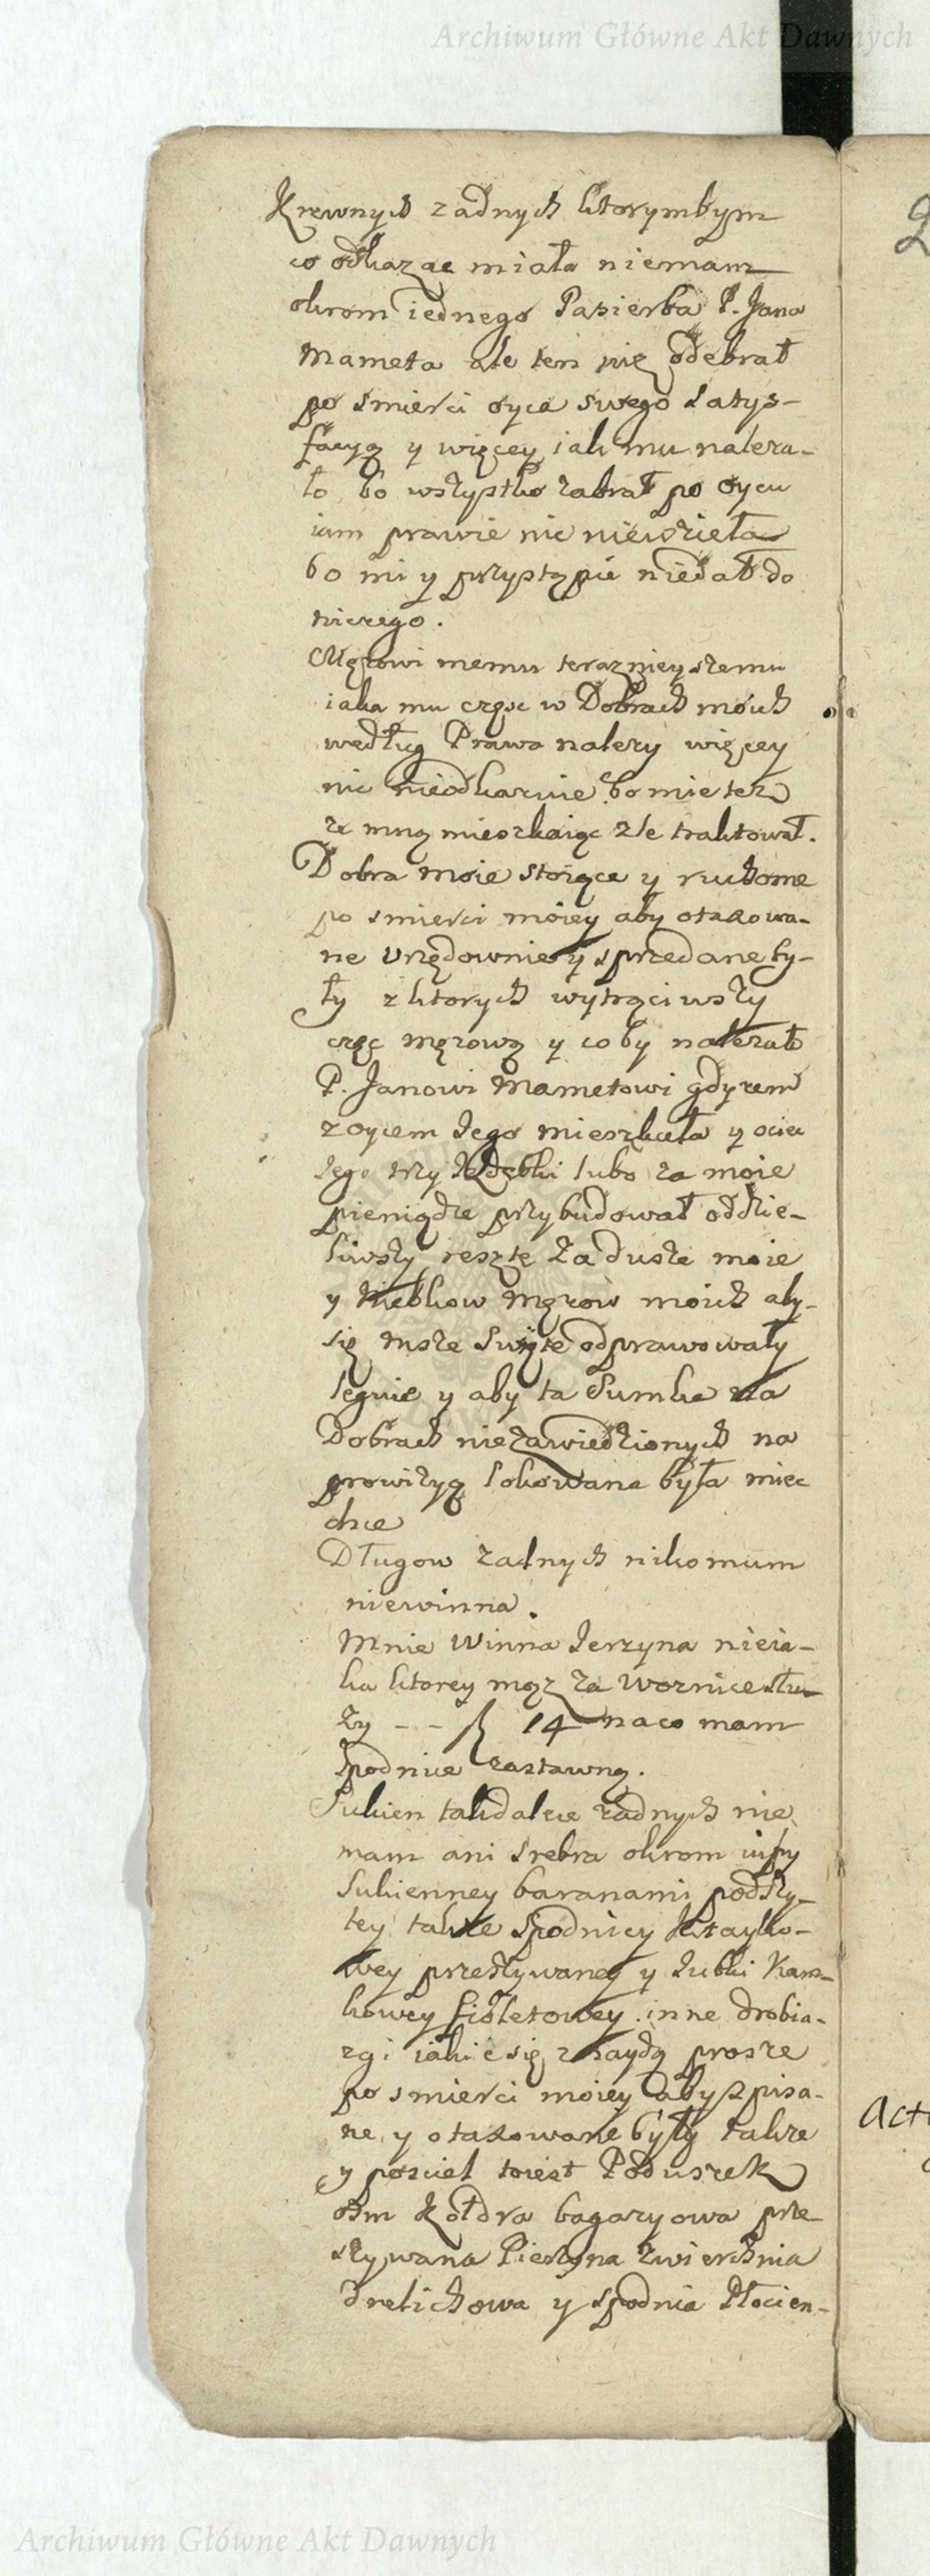 Archiwum Główne Akt Dawnych
Krewnych zadnych ktorymbym
co odkazac miała niemam
okrom iednego Pasierba P. Jana
Mameta ale ten się odebrał
po smierci oyca swego Satys-
facyą y więcey iak mu naleza-
ło bo wszystko zabrał po oycu
iam prawie nic niewzieła
bo mi y przystąpic niedał do
niczego.
Męzowi memu teraznieyszemu
iaka mu częsc w Dobrach moich
według Prawa nalezy więcey
nic nieodkazuie bo mie tez
ze mną mieszkaiąc zle traktował.
Dobra moie stoiące y ruchome
po smierci moiey aby otaxowa-
ne Urzędownie y sprzedane by-
ły z ktorych wytrąciwszy
częsc męzową y coby nalezało
P. Janowi Mametowi gdyzem
z oycem Jego mieszkała y ociec
Jego trzy lubo za moie
pieniądze przybudował oddzie-
liwszy resztę za dusze moie
y Niebkow Męzow moich aby-
się Msze Swięte odprawowały
legnie y aby ta Sumka na
Dobrach niezawiedzionych na
prowizyą lokowana była miec
chce
Długow zadnych nikomum
niewinna.
Mnie Winna Jerzyna nieia-
ka ktorey mąz za Woznice słu-
zy - - f 14 naco mam
Spodnice zastawną.
Sukien takdalece zadnych nie
mam ani srebra okrom iupy
Sukienney baranami podszy-
tey takze Spodnicy kitayko-
wey przeszywaney y Jubki Kam-
kowey fioletowey inne drobia-
zgi iakie się znaydą prosze
po smierci moiey aby spisa-
ne y otaxowane były takze
y posciel toiest Poduszek
osm kołdra bagazyowa prze
szywana Pierzyna zwierzchnia
drelichowa y spodnia Płocien-
Act
Archiwum Główne Akt Dawnych